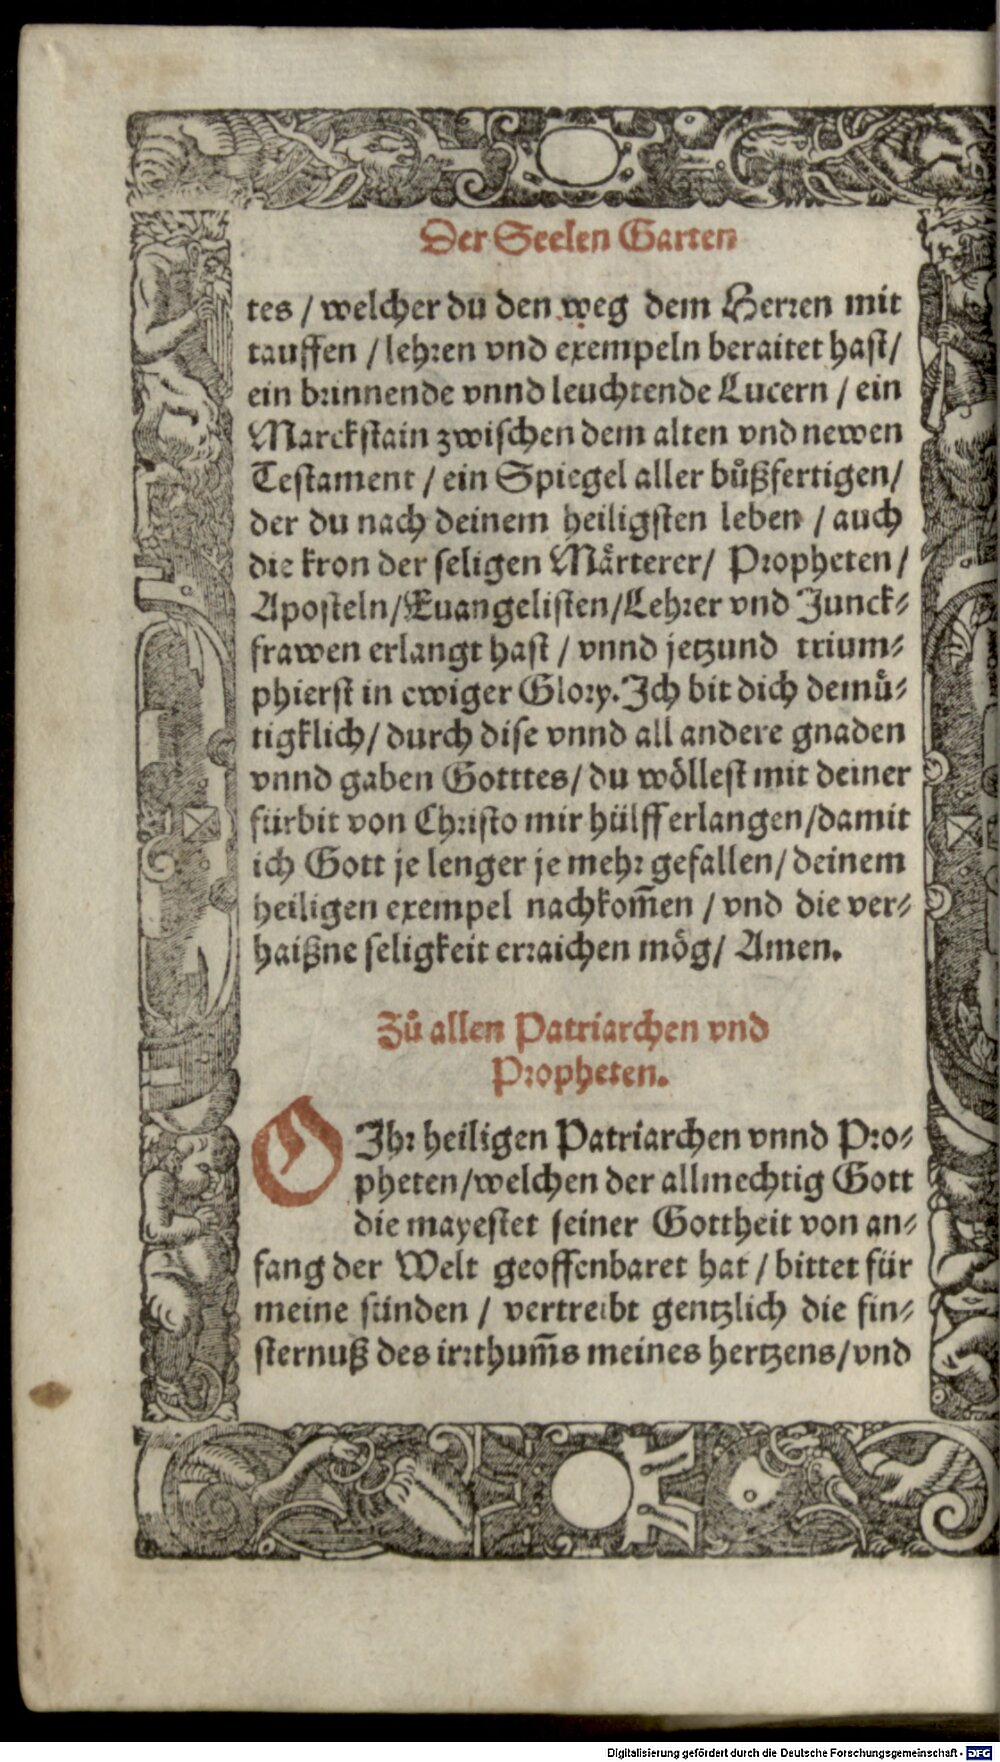 Der Seelen Garten
tes / welcher du den weg dem Herren mit
tauffen / lehren vnd exempeln beraitet hast/
ein brinnende vnnd leuchtende Lucern / ein
Marckstain zwischen dem alten vnd newen
Testament / ein Spiegel aller bůßfertigen/
der du nach deinem heiligsten leben / auch
die kron der seligen Maͤrterer/ Propheten /
Aposteln/Euangelisten/Lehrer vnd Junck⸗
frawen erlangt hast / vnnd jetzund trium⸗
phierst in ewiger Glory. Ich bit dich demuͤ⸗
tigklich/ durch dise vnnd all andere gnaden
vnnd gaben Gotttes/ du woͤllest mit deiner
fürbit von Christo mir hülff erlangen/damit
ich Gott je lenger je mehr gefallen/ deinem
heiligen exempel nachkom̄en / vnd die ver⸗
haißne seligkeit erraichen moͤg/ Amen.
Zů allen Patriarchen vnd
Propheten.
O Ihr heiligen Patriarchen vnnd Pro⸗
pheten/welchen der allmechtig Gott
die mayestet seiner Gottheit von an⸗
fang der Welt geoffenbaret hat / bittet für
meine sünden / vertreibt gentzlich die fin⸗
sternuß des irrthum̄s meines hertzens/vnd
Digitalisierung gefördert durch die Deutsche Forschungsgemeinschaft - DFG